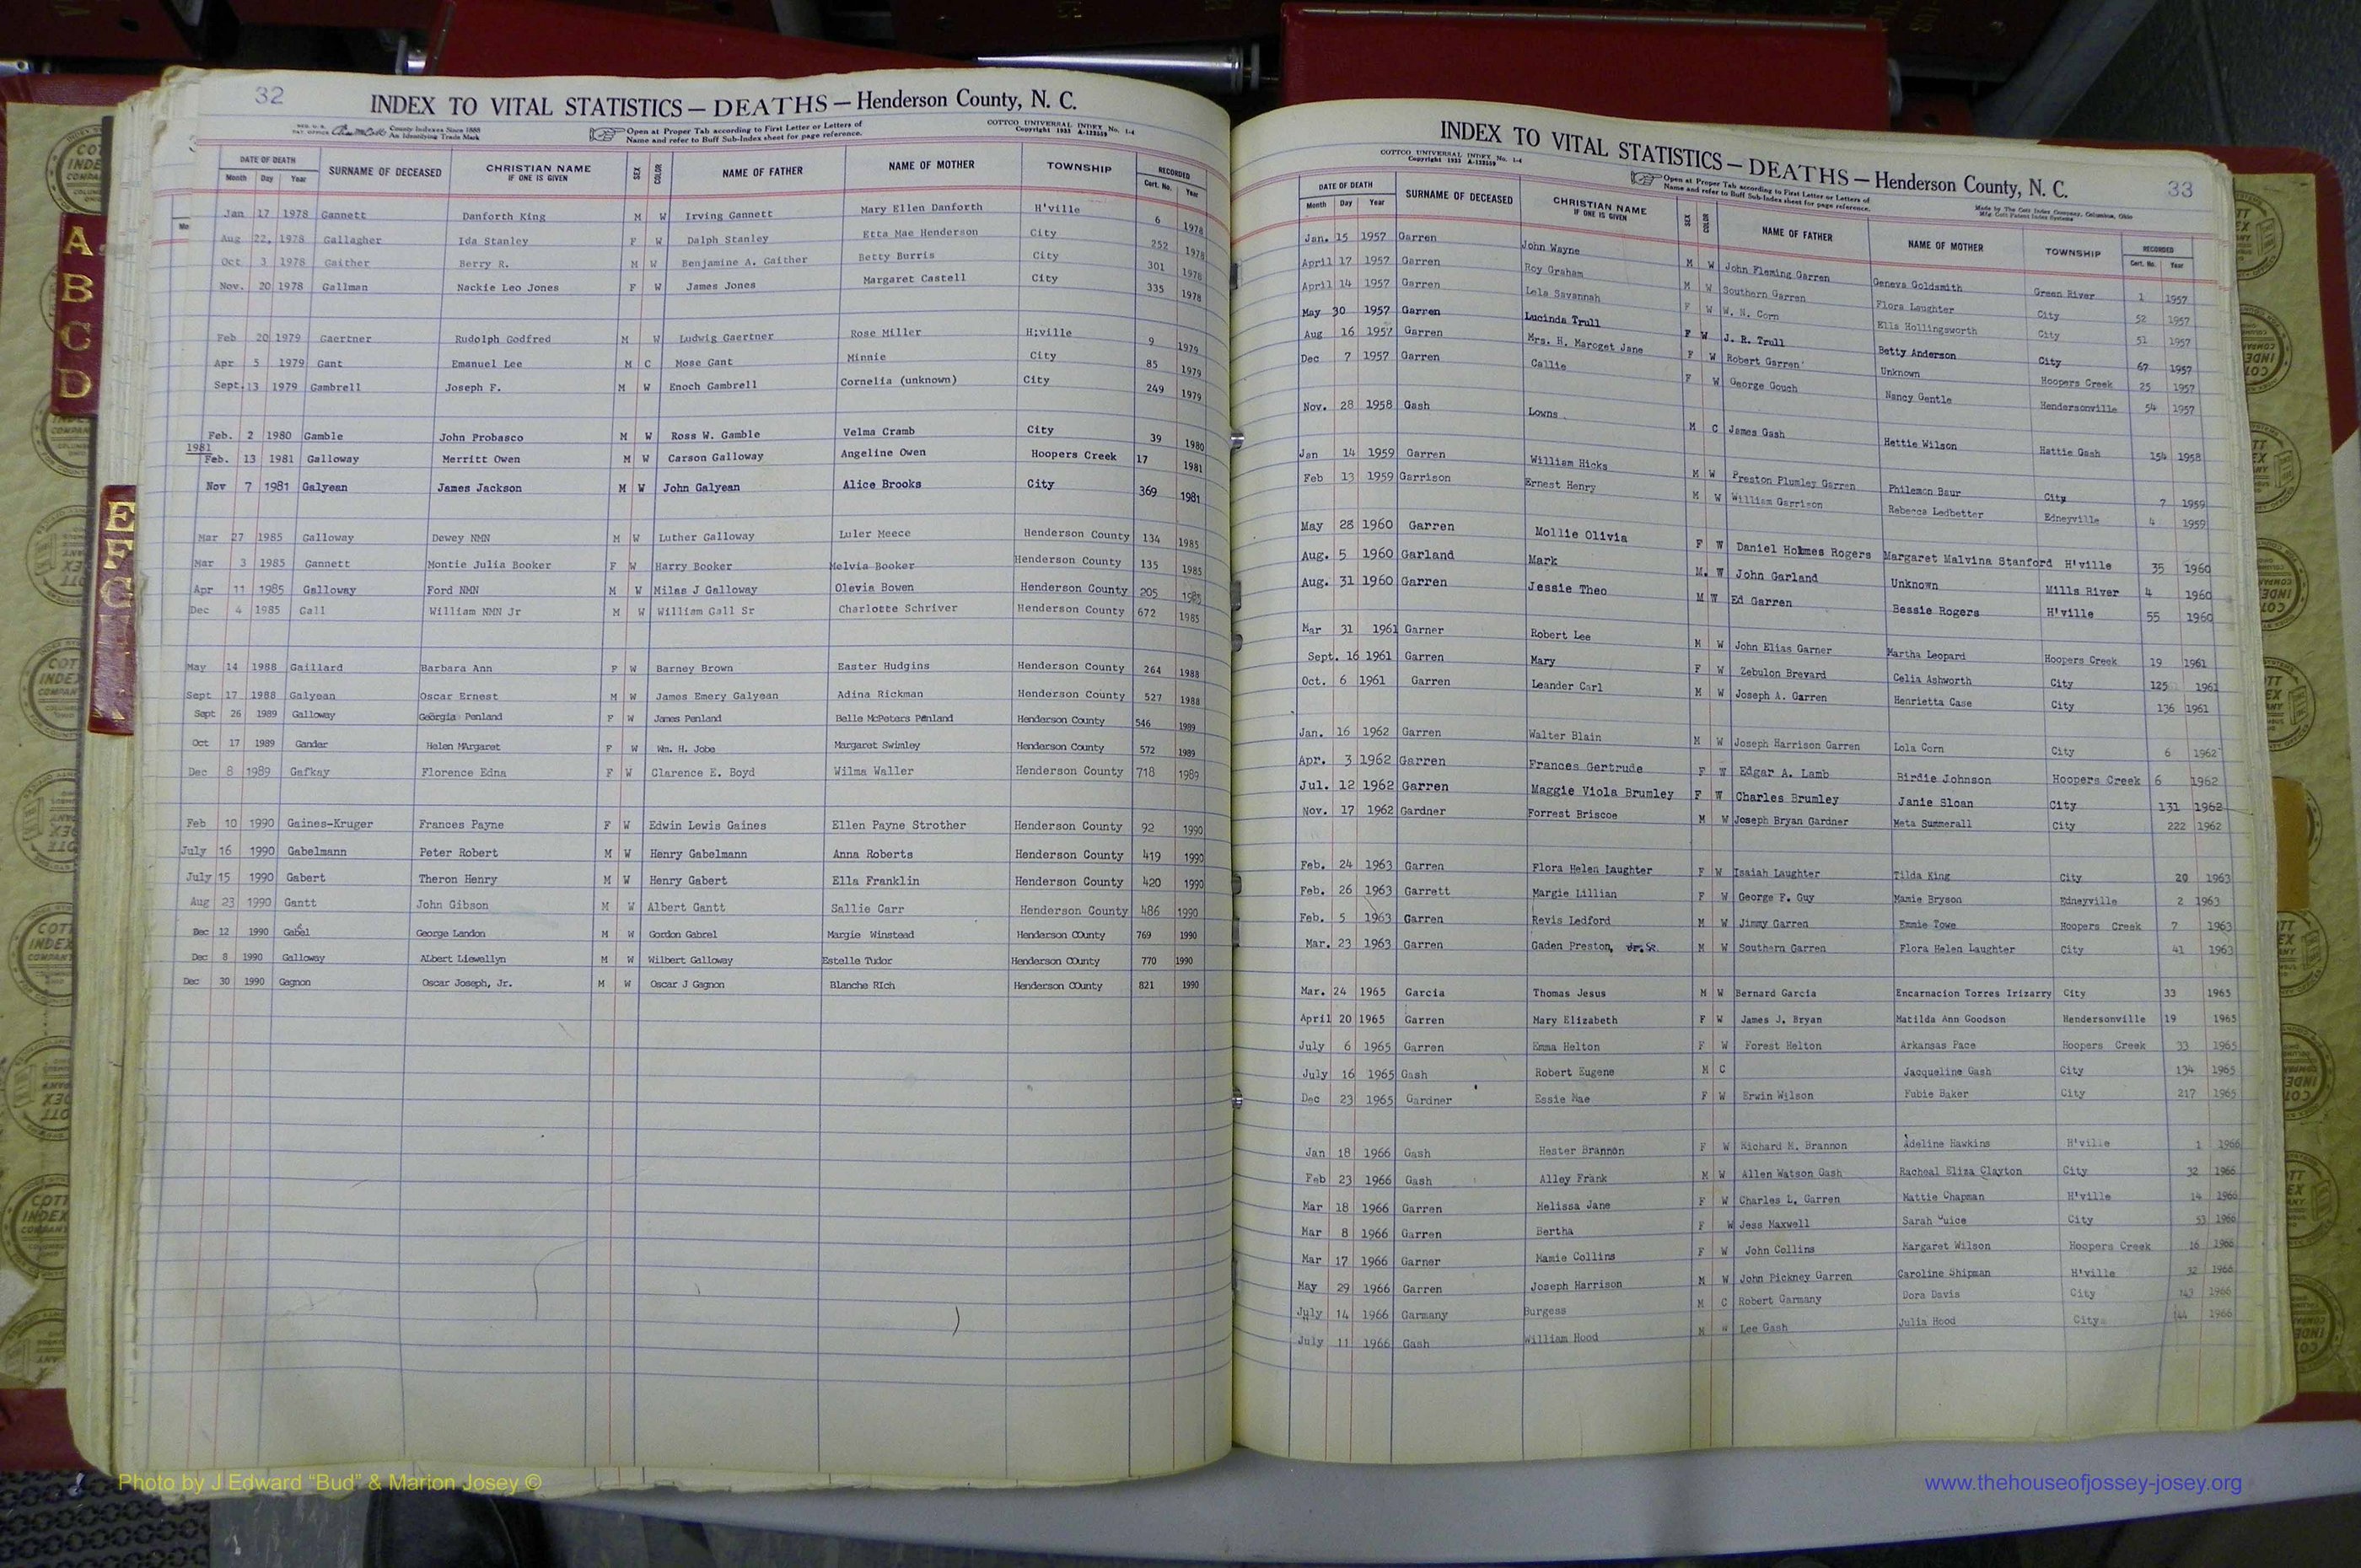 32
INDEX TO VITAL STATISTICS — DEATHS — Henderson County, N. C.
County Indexes Since 1888
An Identifying Trade Mark
Open at Proper Tab according to First Letter or Letters of
Name and refer to Buff Sub-Index sheet for page reference.
COTTCO UNIVERSAL INDEX No. 1-4
Copyright 1933 A-123559
DATE OF DEATH SURNAME OF DECEASED CHRISTIAN NAME IF ONE IS GIVEN SEX COLOR NAME OF FATHER NAME OF MOTHER TOWNSHIP RECORDED
Month Day Year Cert. No. Year
Jan 17 1978 Gannett Danforth King M W Irving Gannett Mary Ellen Danforth H'ville 6 1978
Aug 22, 1978 Gallagher Ida Stanley F W Dalph Stanley Etta Mae Henderson City 252 1978
Oct 3 1978 Gaither Berry R. M W Benjamine A. Gaither Betty Burris City 301 1978
Nov. 20 1978 Gallman Nackie Leo Jones F W James Jones Margaret Castell City 335 1978
Feb 20 1979 Gaertner Rudolph Godfred M W Ludwig Gaertner Rose Miller H;ville 9 1979
Apr 5 1979 Gant Emanuel Lee M C Mose Gant Minnie City 85 1979
Sept.13 1979 Gambrell Joseph F. M W Enoch Gambrell Cornelia (unknown) City 249 1979
Feb. 2 1980 Gamble John Probasco M W Ross W. Gamble Velma Cramb City 39 1980
1981
Feb. 13 1981 Galloway Merritt Owen M W Carson Galloway Angeline Owen Hoopers Creek 17 1981
Nov 7 1981 Galyean James Jackson M W John Galyean Alice Brooks City 369 1981
Mar 27 1985 Galloway Dewey NMN M W Luther Galloway Luler Meece Henderson County 134 1985
Mar 3 1985 Gannett Montie Julia Booker F W Harry Booker Melvia Booker Henderson County 135 1985
Apr 11 1985 Galloway Ford NMN M W Milas J Galloway Olevia Bowen Henderson County 205 1985
Dec 4 1985 Gall William NMN Jr M W William Gall Sr Charlotte Schriver Henderson County 672 1985
May 14 1988 Gaillard Barbara Ann F W Barney Brown Easter Hudgins Henderson County 264 1988
Sept 17 1988 Galyean Oscar Ernest M W James Emery Galyean Adina Rickman Henderson County 527 1988
Sept 26 1989 Galloway Georgia Penland F W James Penland Belle McPeters Penland Henderson County 546 1989
Oct 17 1989 Gander Helen MArgaret F W Wm. H. Jobe Margaret Swimley Henderson County 572 1989
Dec 8 1989 Gafkay Florence Edna F W Clarence E. Boyd Wilma Waller Henderson County 718 1989
Feb 10 1990 Gaines-Kruger Frances Payne F W Edwin Lewis Gaines Ellen Payne Strother Henderson County 92 1990
July 16 1990 Gabelmann Peter Robert M W Henry Gabelmann Anna Roberts Henderson County 419 1990
July 15 1990 Gabert Theron Henry M W Henry Gabert Ella Franklin Henderson County 420 1990
Aug 23 1990 Gantt John Gibson M W Albert Gantt Sallie Carr Henderson County 486 1990
Dec 12 1990 George Landon M W Gordon Gabrel Margie Winstead Henderson COunty 769 1990
Dec 8 1990 Galloway ALbert Llewellyn M W Wilbert Galloway Estelle Tudor Henderson COunty 770 1990
Dec 30 1990 Gagnon Oscar Joseph, Jr. M W Oscar J Gagnon Blanche RIch Henderson COunty 821 1990
A
B
C
D
E
F
G
33
INDEX TO VITAL STATISTICS — DEATHS — Henderson County, N. C.
COTTCO UNIVERSAL INDEX No. 1-4
Copyright 1933 A-123559
Open at Proper Tab according to First Letter or Letters of
Name and refer to Buff Sub-Index sheet for page reference.
Made by The Cott Index Company, Columbus, Ohio
DATE OF DEATH SURNAME OF DECEASED CHRISTIAN NAME IF ONE IS GIVEN SEX COLOR NAME OF FATHER NAME OF MOTHER TOWNSHIP RECORDED
Month Day Year Cert. No. Year
Jan. 15 1957 Garren John Wayne M W John Fleming Garren Geneva Goldsmith Green River 1 1957
April 17 1957 Garren Roy Graham M W Southern Garren Flora Laughter City 52 1957
April 14 1957 Garren Lela Savannah F W W. N. Corn Ella Hollingsworth City 51 1957
May 30 1957 Garren Lucinda Trull F W J. R. Trull Betty Anderson City 67 1957
Aug 16 1957 Garren Mrs. H. Maroget Jane F W Robert Garren Unknown Hoopers Creek 25 1957
Dec 7 1957 Garren Callie F W George Gouch Nancy Gentle Hendersonville 54 1957
Nov. 28 1958 Gash Lowns M C James Gash Hettie Wilson Hattie Gash 154 1958
Jan 14 1959 Garren William Hicks M W Preston Plumley Garren Philemon Baur City 7 1959
Feb 13 1959 Garrison Ernest Henry M W William Garrison Rebecca Ledbetter Edneyville 4 1959
May 28 1960 Garren Mollie Olivia F W Daniel Holmes Rogers Margaret Malvina Stanford H'ville 35 1960
Aug. 5 1960 Garland Mark M. W John Garland Unknown Mills River 4 1960
Aug. 31 1960 Garren Jessie Theo M W Ed Garren Bessie Rogers H'ville 55 1960
Mar 31 1961 Garner Robert Lee M W John Elias Garner Martha Leopard Hoopers Creek 19 1961
Sept. 16 1961 Garren Mary F W Zebulon Brevard Celia Ashworth City 125 1961
Oct. 6 1961 Garren Leander Carl M W Joseph A. Garren Henrietta Case City 136 1961
Jan. 16 1962 Garren Walter Blain M W Joseph Harrison Garren Lola Corn City 6 1962
Apr. 3 1962 Garren Frances Gertrude F W Edgar A. Lamb Birdie Johnson Hoopers Creek 6 1962
Jul. 12 1962 Garren Maggie Viola Brumley F W Charles Brumley Janie Sloan City 131 1962
Nov. 17 1962 Gardner Forrest Briscoe M W Joseph Bryan Gardner Meta Summerall City 222 1962
Feb. 24 1963 Garren Flora Helen Laughter F W Isaiah Laughter Tilda King City 20 1963
Feb. 26 1963 Garrett Margie Lillian F W George F. Guy Mamie Bryson Edneyville 2 1963
Feb. 5 1963 Garren Revis Ledford M W Jimmy Garren Emmie Towe Hoopers Creek 7 1963
Mar. 23 1963 Garren Gaden Preston, Jr. Sr. M W Southern Garren Flora Helen Laughter City 41 1963
Mar. 24 1965 Garcia Thomas Jesus M W Bernard Garcia Encarnacion Torres Irizarry City 33 1965
April 20 1965 Garren Mary Elizabeth F W James J. Bryan Matilda Ann Goodson Hendersonville 19 1965
July 6 1965 Garren Emma Helton F W Forest Helton Arkansas Pace Hoopers Creek 33 1965
July 16 1965 Gash Robert Eugene M C Jacqueline Gash City 134 1965
Dec 23 1965 Gardner Essie Mae F W Erwin Wilson Fubie Baker City 217 1965
Jan 18 1966 Gash Hester Brannon F W Richard M. Brannon Adeline Hawkins H'ville 1 1966
Feb 23 1966 Gash Alley Frank M W Allen Watson Gash Racheal Eliza Clayton City 32 1966
Mar 18 1966 Garren Melissa Jane F W Charles L. Garren Mattie Chapman H'ville 14 1966
Mar 8 1966 Garren Bertha F W Jess Maxwell Sarah City 53 1966
Mar 17 1966 Garner Mamie Collins F W John Collins Margaret Wilson Hoopers Creek 16 1966
May 29 1966 Garren Joseph Harrison M W John Pickney Garren Caroline Shipman H'ville 32 1966
July 14 1966 Garmany Burgess M C Robert Garmany Dora Davis City 143 1966
July 11 1966 Gash William Hood M W Lee Gash Julia Hood City 144 1966
Photo by J Edward “Bud” & Marion Josey ©
www.thehouseofjossey-josey.org